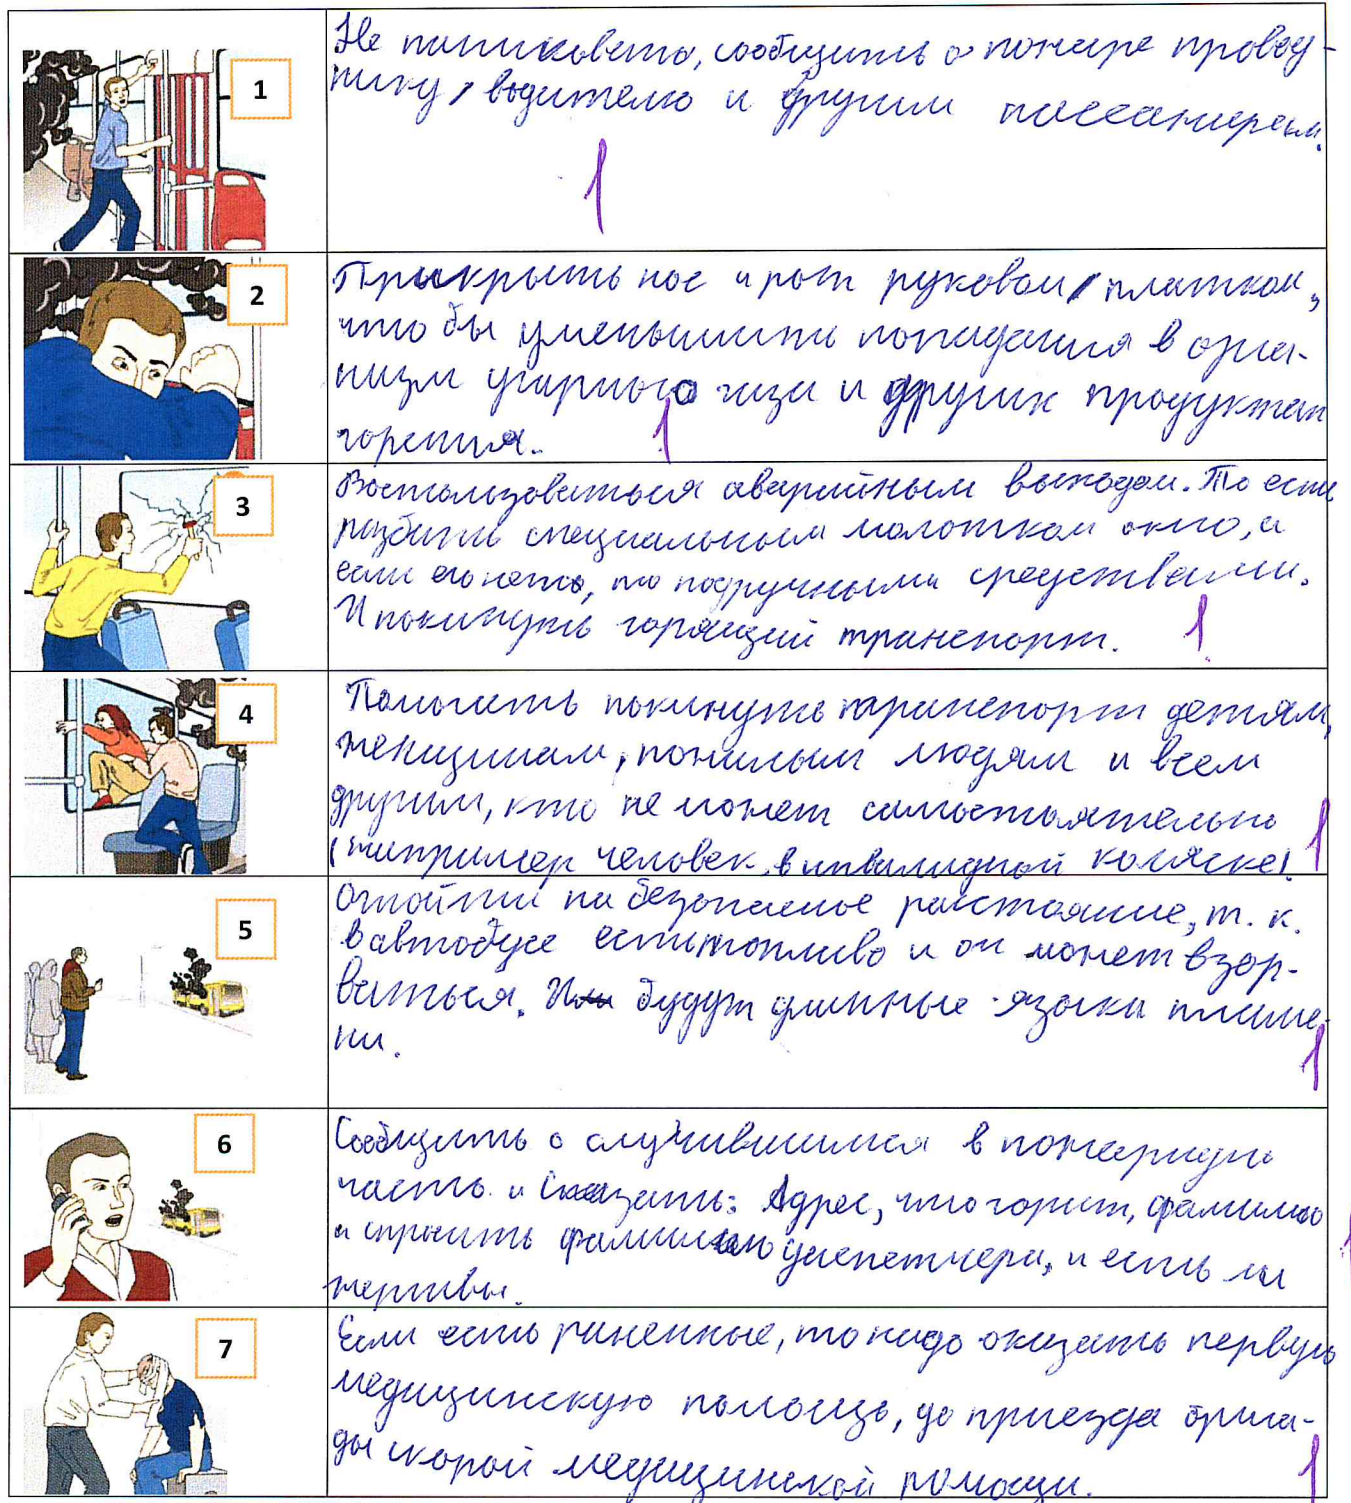 1
Не паниковать, сообщить о пожаре провод-
нику, водителю и другим пассажирам.
1
2
Прикрыть нос и рот рукавом, платком,
что бы уменьшить попадания в орга-
низм угарного газа и других продуктам
горения.
1
3
Воспользоваться аварийным выходом. То есть
разбить специальным молотком окно, а
если его нето, то подручными средствами.
И покинуть горящий транспорт.
1
4
Помогать покинуть транспорт детям,
женщинам, пожилым людям и всем
другим, кто не может самостоятельно
(например человек в инвалидной коляске).
1
5
Отойти на безопасное расстояние, т. к.
в автобусе есть топливо и он может взор-
ваться. И будут длинные языки пламе-
ни.
1
6
Сообщить о случившимся в пожарную
часть и сказать: Адрес, что горит, фамилию
и спросить фамилию диспетчера, и есть ли
жертвы.
7
Если есть раненные, то надо оказать первую
медицинскую помощь, до приезда брига-
ды скорой медицинской помощи.
1